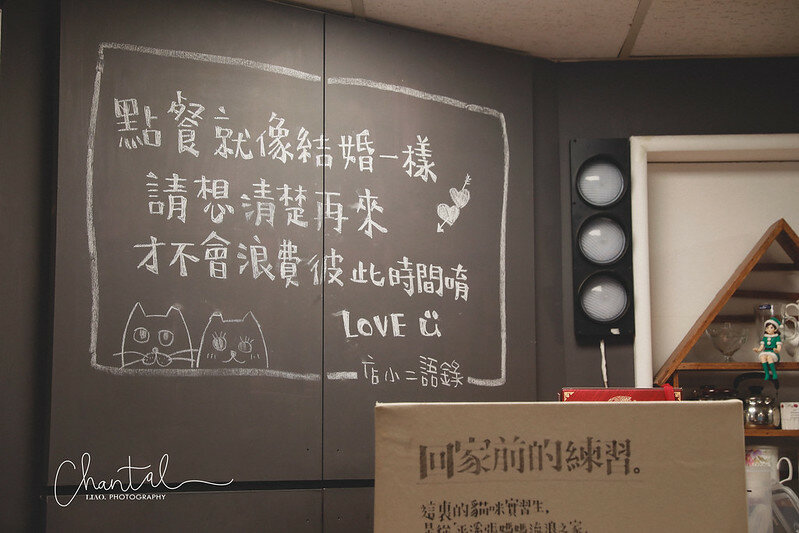 點餐就像結婚一樣
請想清楚再來
才不會浪費彼此時間唷
LOVE
店小二語錄
回家前的練習。
這裏的貓咪實習生,
Chantal
LIAO. PHOTOGRAPHY